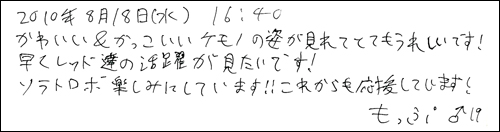 2010年8月18日(水) 16:40
かわいい&かっこいいケモノの姿が見れてとてもうれしいです!
早くレッド達の活躍が見たいです!
ソラトロボ楽しみにしています!!これからも応援しています!
もっふぃ ♂19